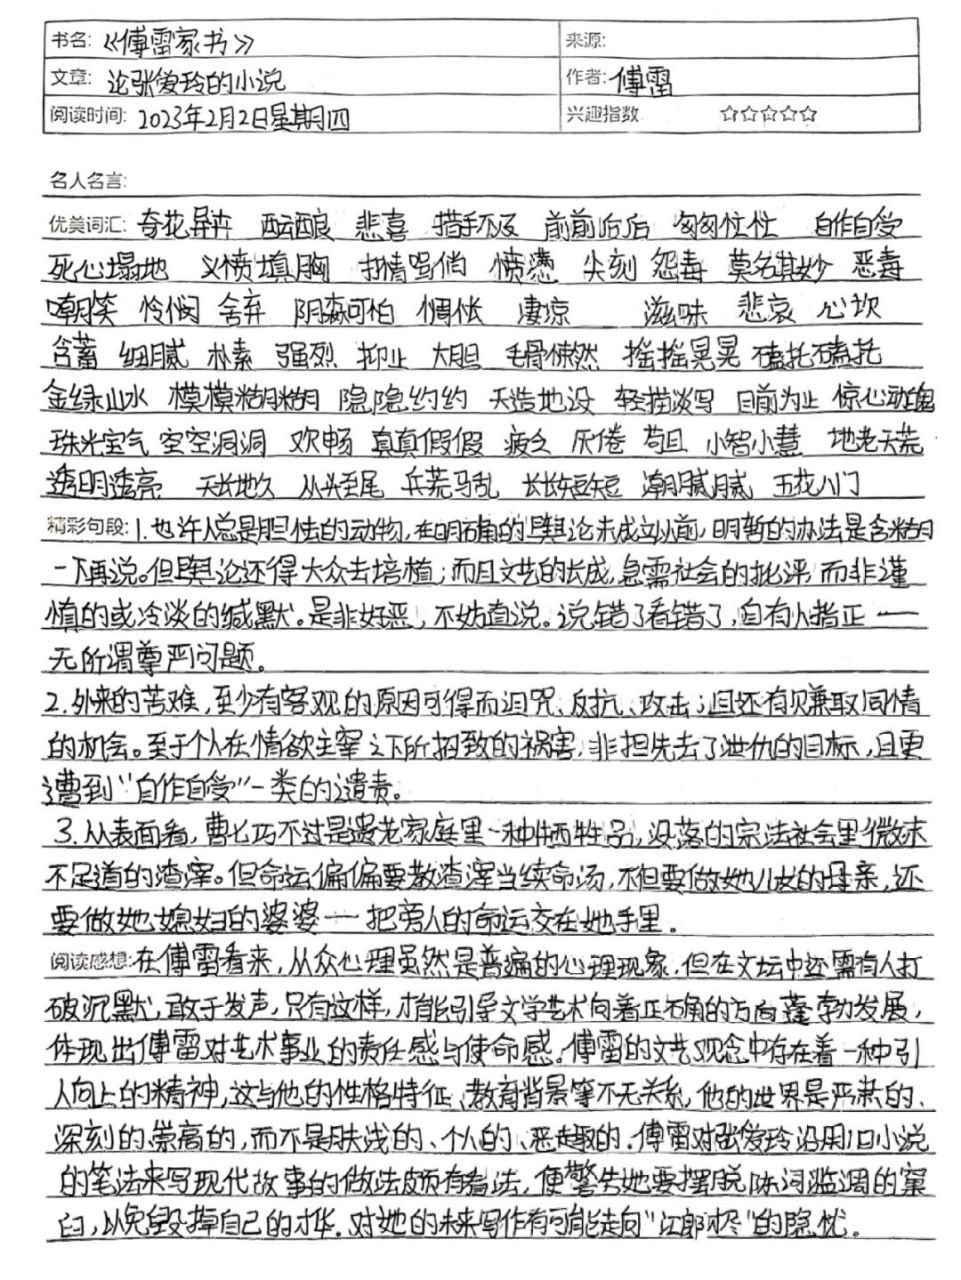 书名: 《傅雷家书》 来源:
文章: 论张爱玲的小说 作者: 傅雷
阅读时间: 2023年2月2日星期四 兴趣指数 ☆☆☆☆☆
名人名言:
优美词汇: 夸花异卉 酝酿 悲喜 措手不及 前前后后 匆匆忙忙 自作自受
死心塌地 义愤填胸 打情骂俏 愤懑 尖刻 怨毒 莫名其妙 恶毒
嘲笑 怜悯 舍弃 阴森可怕 惆怅 凄凉 滋味 悲哀 心坎
含蓄 细腻 朴素 强烈 抑止 大胆 毛骨悚然 摇摇晃晃 磕托磕托
金绿山水 模模糊糊 隐隐约约 天造地设 轻描淡写 目前为止 惊心动魄
珠光宝气 空空洞洞 欢畅 真真假假 疲乏 厌倦 苟且 小智小慧 地老天荒
透明透亮 天长地久 从头至尾 兵荒马乱 长长短短 潮腻腻 五花八门
精彩句段: 1.也许人总是胆怯的动物,在明确的舆论未成立以前,明哲的办法是含糊
一下再说。但舆论还得大众去培植;而且文艺的长成,急需社会的批评,而非谨
慎的或冷淡的缄默。是非好恶,不妨直说。说错了看错了,自有人指正 ——
无所谓尊严问题。
2.外来的苦难,至少有客观的原因可得而诅咒、反抗、攻击;且还有赚取同情
的机会。至于个人在情欲主宰之下所招致的祸害,非担先去了泄仇的目标,且更
遭到“自作自受”一类的谴责。
3.从表面看,曹七巧不过是遗老家庭里一种牺牲品,没落的宗法社会里微末
不足道的渣滓。但命运偏偏要教渣滓当续命汤,不但要做她儿女的母亲,还
要做她媳妇的婆婆 —— 把旁人的命运交在她手里。
阅读感想: 在傅雷看来,从众心理虽然是普遍的心理现象,但在文坛中还需有人打
破沉默,敢于发声,只有这样,才能引导文学艺术向着正确的方向蓬勃发展,
体现出傅雷对艺术事业的责任感与使命感。傅雷的文艺观念中存在着一种引
人向上的精神,这与他的性格特征、教育背景等不无关系,他的世界是严肃的、
深刻的崇高的,而不是肤浅的、个人的、恶趣的.傅雷对张爱玲沿用旧小说
的笔法来写现代故事的做法颇有看法,便警告她要摆脱陈词滥调的窠
臼,以免毁掉自己的才华.对她的未来写作有可能走向“江郎才尽”的隐忧。